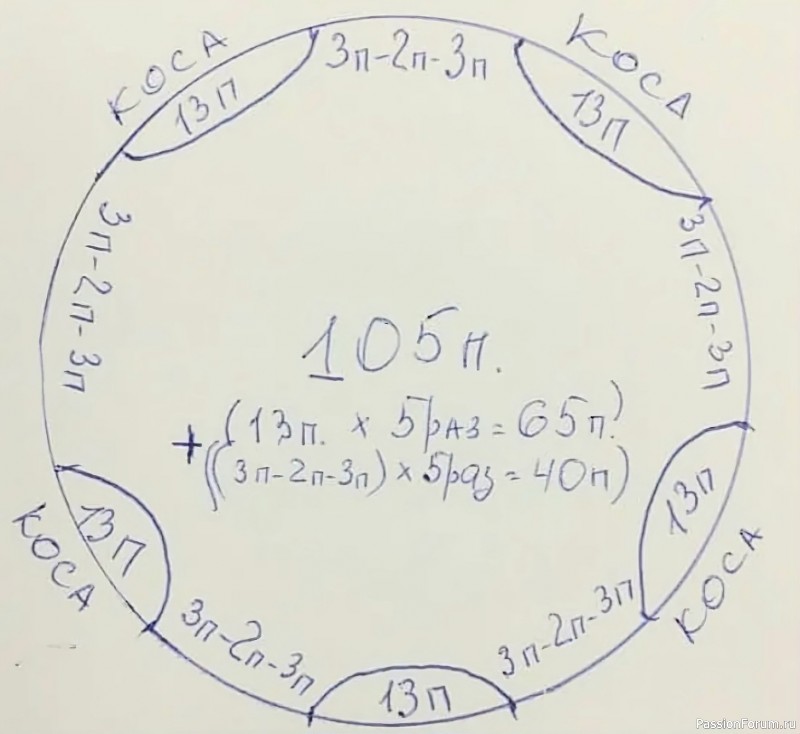 КОСА
13п
3п-2п-3п
КОСА
13п
3п-2п-3п
3п-2п-3п
105п.
+(13п. х 5раз=65п.)
((3п-2п-3п)х5раз=40п)
КОСА
13п
13п
КОСА
3п-2п-3п
3п-2п-3п
13п
PassionForum.ru